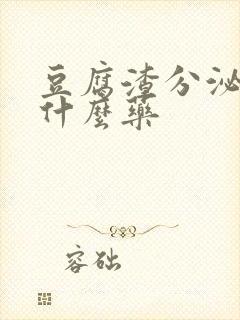 豆腐渣分泌
什麼藥
容础